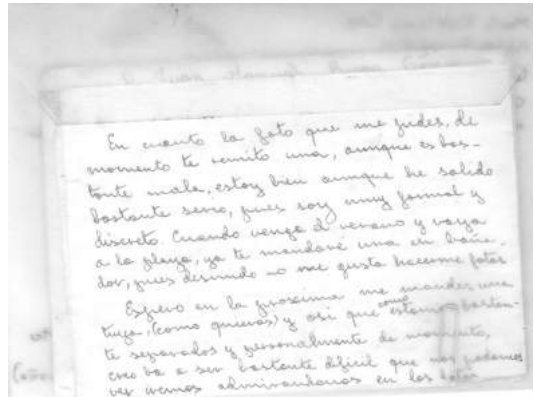 En cuanto la foto que me pides, de
momento te remito una, aunque es bas-
tante mala, estoy bien aunque he salido
bastante serio, pues soy muy formal y
discreto. Cuando venga el verano y vaya
a la playa, ya te mandaré una en baña-
dor, pues desnudo no me gusta hacerme fotos
Espero en la proxima me mandes una
tuya, (como quieras) y asi que como estamos bastan-
te separados y personalmente de momento,
creo va a ser bastante dificil que nos podamos
ver iremos admirandonos en las fotos